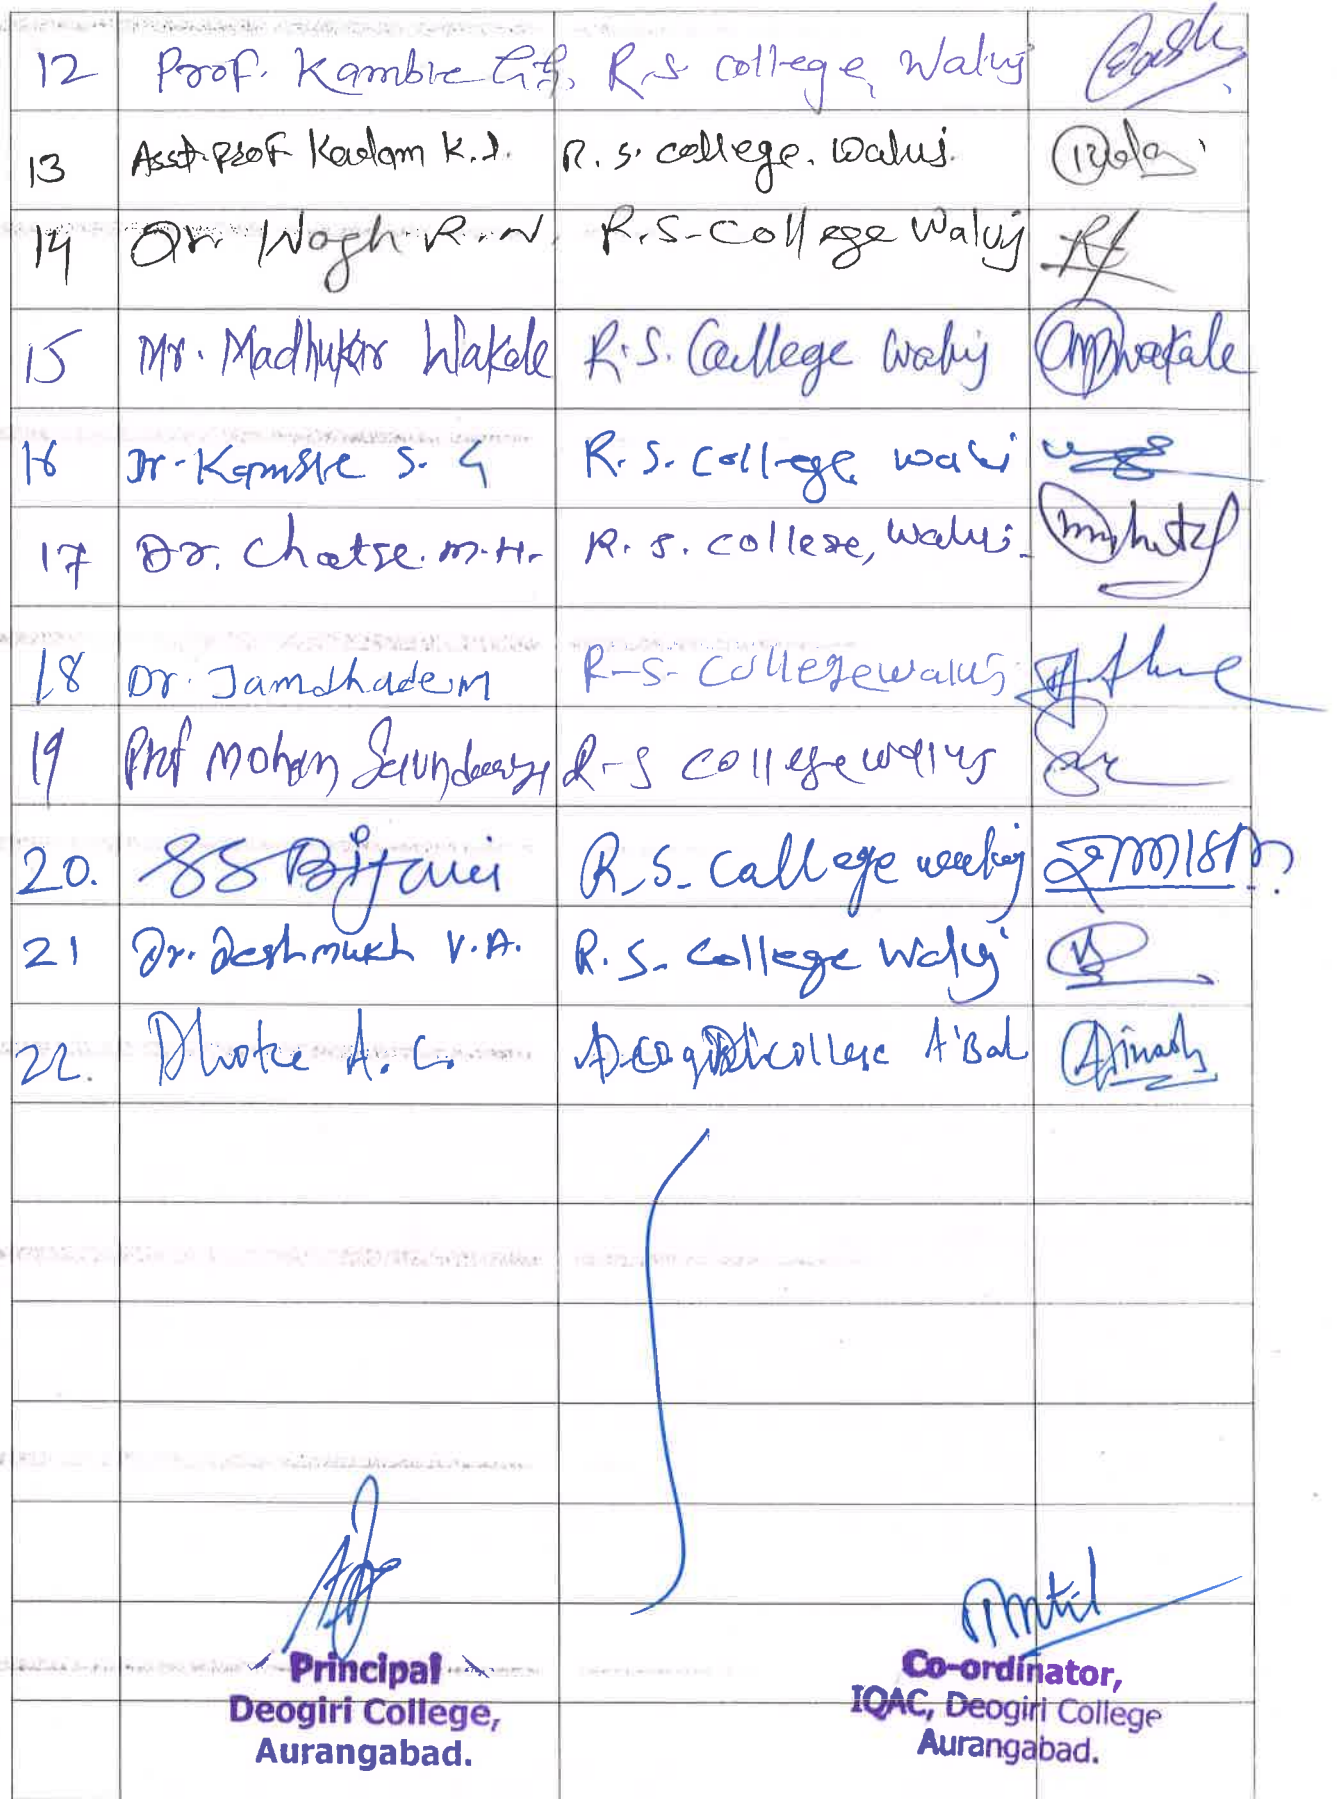 12 Prof. Kamble R.S. College, Waluj
13 Asst. Prof. Kadam K.J. R.S. College. Waluj.
14 Dr. Wagh R.N. R.S-College Waluj
15 Mr. Madhukar Wakale R.S. College Waluj Wakale
16 Dr. Kamble S. G R.S. College Waluj
17 Dr. Chatse. M.H. R.S. College, Waluj.
18 Dr. Jamdhade M R-S- College Waluj
19 Prof Mohan R-S College Waluj
20. SS R.S. College Waluj
21 Dr. Deshmukh V.A. R.S. College Waluj
22. Dhoke A.C. Deogiri College A'Bad
Principal Co-ordinator,
Deogiri College, IQAC, Deogiri College
Aurangabad. Aurangabad.